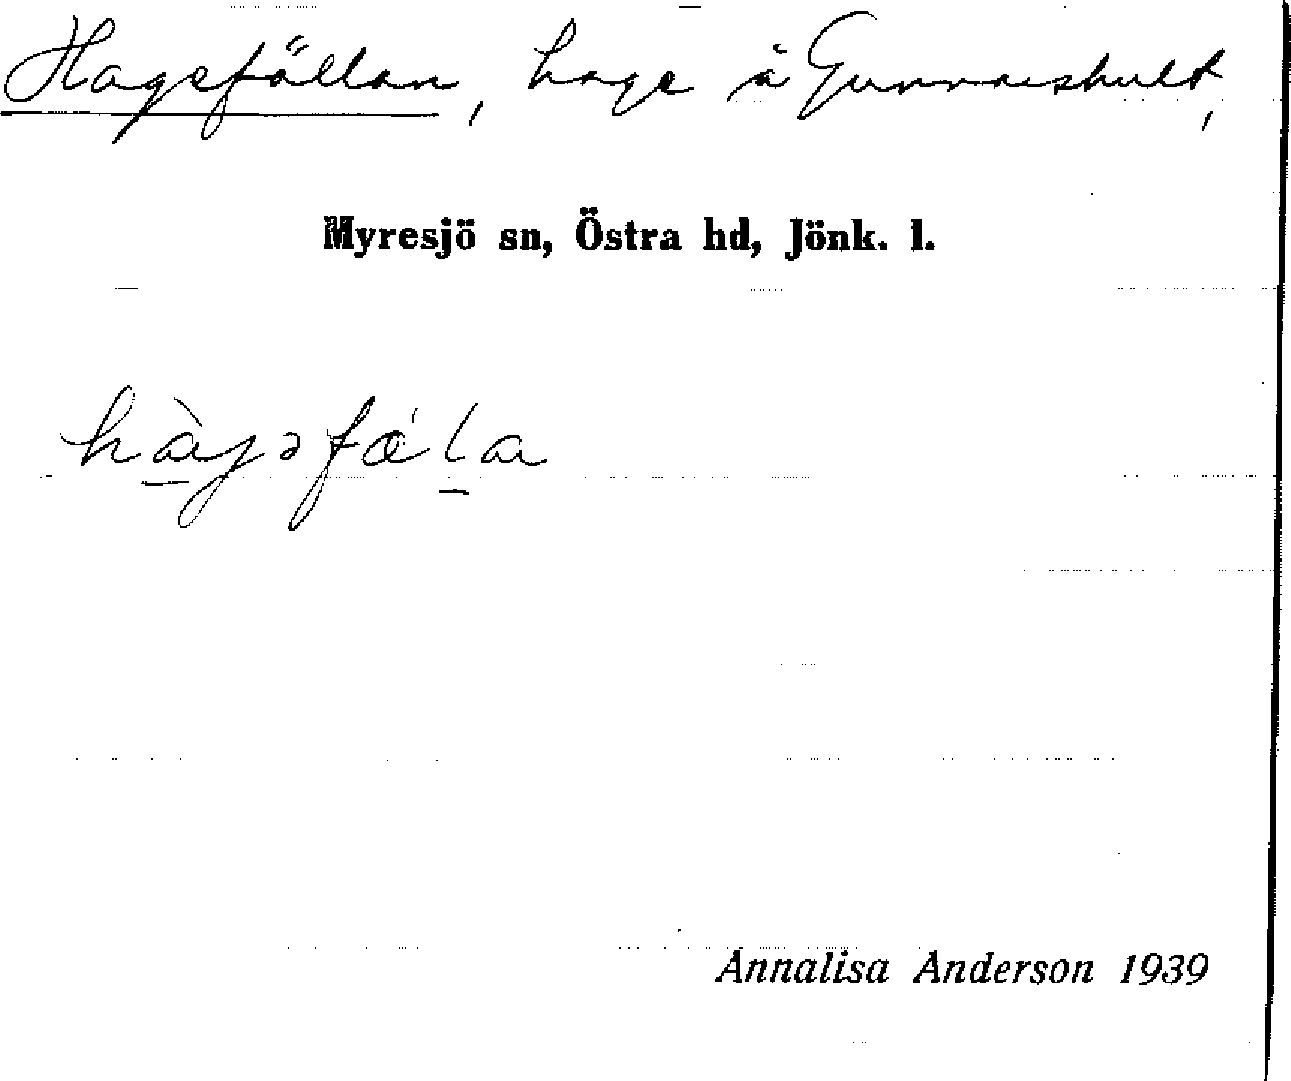 Hagefällan, hage å Gunnarshult,
Myresjö sn, Östra hd, Jönk. l.
hàgəfáʹla
Annalisa Anderson 1939